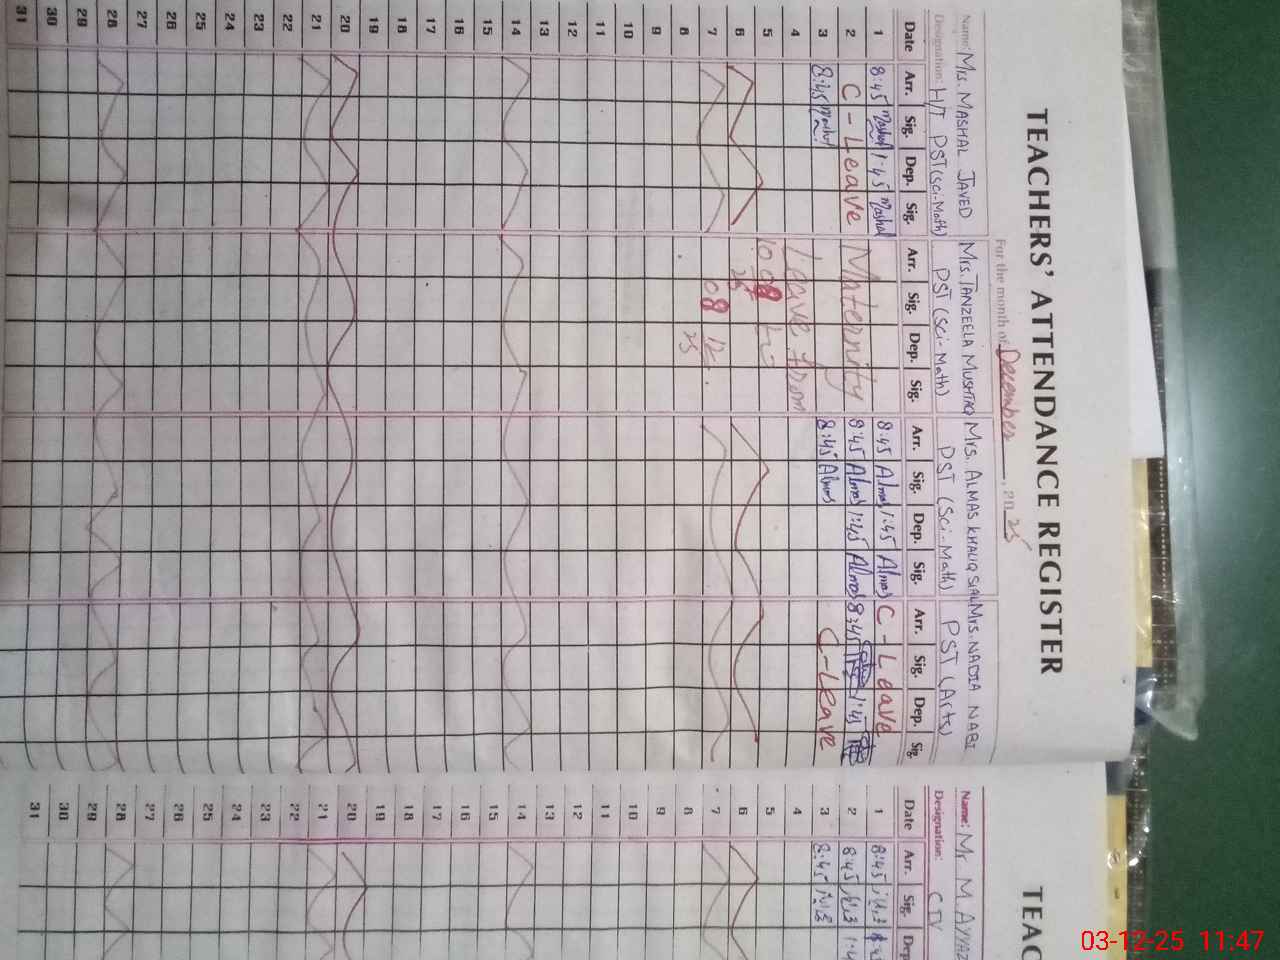 TEACHERS' ATTENDANCE REGISTER
For the month of December, 2025
Name: Mrs. MASHAL JAVED Mrs. TANZEELA MUSHTAQ Mrs. ALMAS KHALIQ SIAL Mrs. NADIA NABI
Designation: H/T PST (Sci-Math) PST (Sci-Math) PST (Sci-Math) PST (Arts)
Date Arr. Sig. Dep. Sig. Arr. Sig. Dep. Sig. Arr. Sig. Dep. Sig. Arr. Sig. Dep. Sig.
1 8:45 Mashal 1:45 Mashal 8:45 Almas 1:45 Almas C-Leave
2 C-Leave Maternity 8:45 Almas 1:45 Almas 8:45 1:45
3 8:45 Mashal 8:45 Almas C-Leave
4 Leave from
5 to
6
7 08 12
8 25
9
10
11
12
13
14
15
16
17
18
19
20
21
22
23
24
25
26
27
28
29
30
31
TEAC
Name: Mr M AYYAZ
Designation: CTV
Date Arr. Sig. Dep
1 8:45
2 8:45 1:4
3 8:45
4
5
6
7
8
9
10
11
12
13
14
15
16
17
18
19
20
21
22
23
24
25
26
27
28
29
30
31
03-12-25 11:47